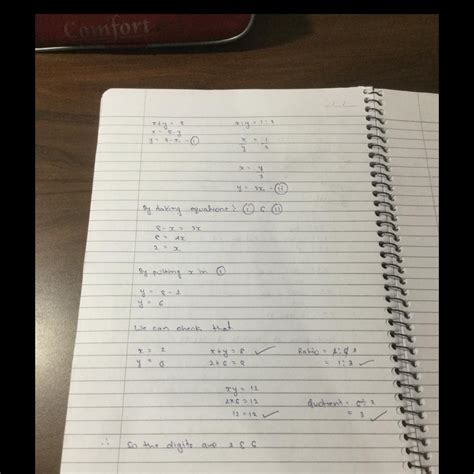 Comfort
x+y = 8          x:y = 1:3
x = 8-y
y = 8-x - (i)          x/y = 1/3
x = y/3
y = 3x - (ii)
By taking equations (i) & (ii)
8-x = 3x
8 = 4x
2 = x
By putting x in (i)
y = 8-2
y = 6
We can check that
x = 2          x+y = 8 ✓          Ratio = 2:6
y = 6          2+6 = 8          = 1:3 ✓
xy = 12
2x6 = 12          Quotient = 6÷2
12 = 12 ✓          = 3 ✓
∴ So the digits are 2 & 6